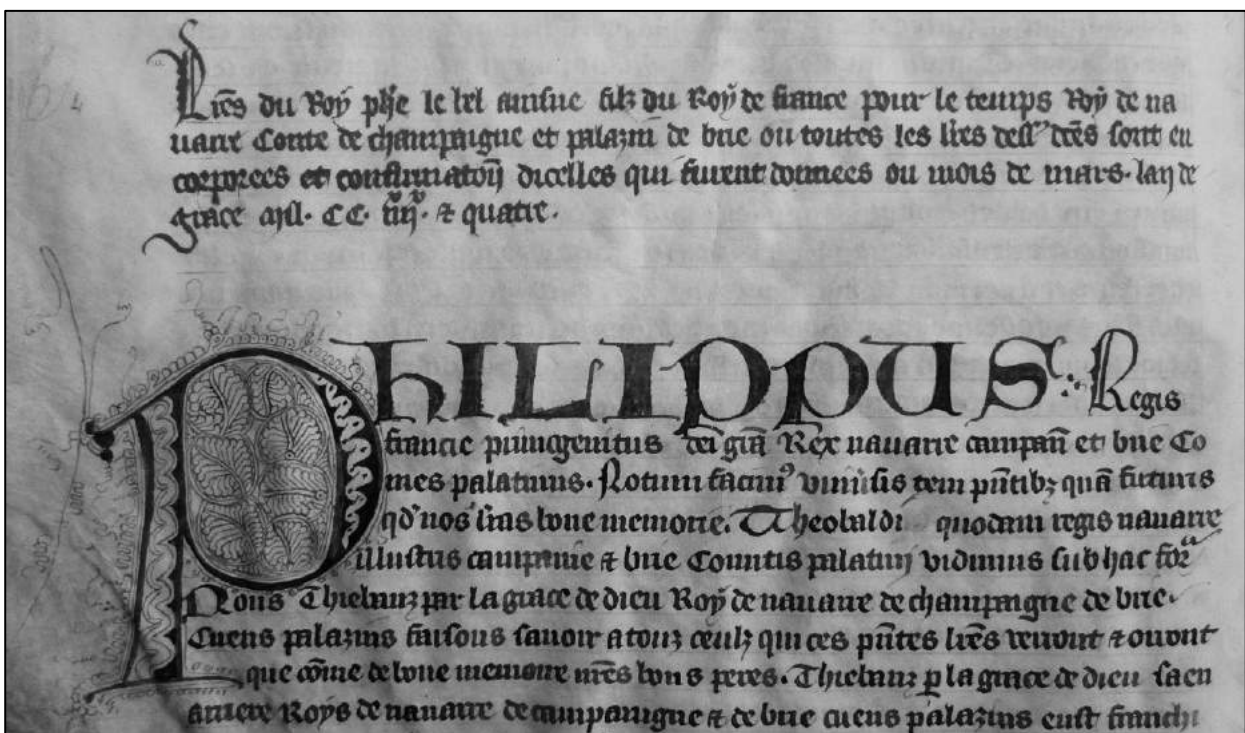 Lres du Roy phe le bel ainsne filz du Roy de france pour le temps Roy de na
uarre Conte de champaigne et palazin de brie ou toutes les lres dess' dces sont en
corporees et confirmaton dicelles qui furent donnees ou mois de mars. lan de
grace mil. CC. iiij. & quatre.
PHILIPPUS. Regis
francie primogenitus dei gra Rex nauarre campan et brie Co
mes palatinus. Notum facim' vniuersis tem pntibz quam futuris
qd nos lras bone memorie. Theobaldi quodam regis nauarre
illustris campanie & brie Comitis palatinj vidimus sub hac for
Nous Thiebauz par la grace de dieu Roy de nauarre de champaigne de brie.
Cuens palazins faisons sauoir a touz ceulz qui ces pntes lres verront & orront
que come de bone memoire nres bons peres. Thiebauz p la grace de dieu ca en
arriere Roys de nauarre de campanigne & de brie cuens palazins eust franchi